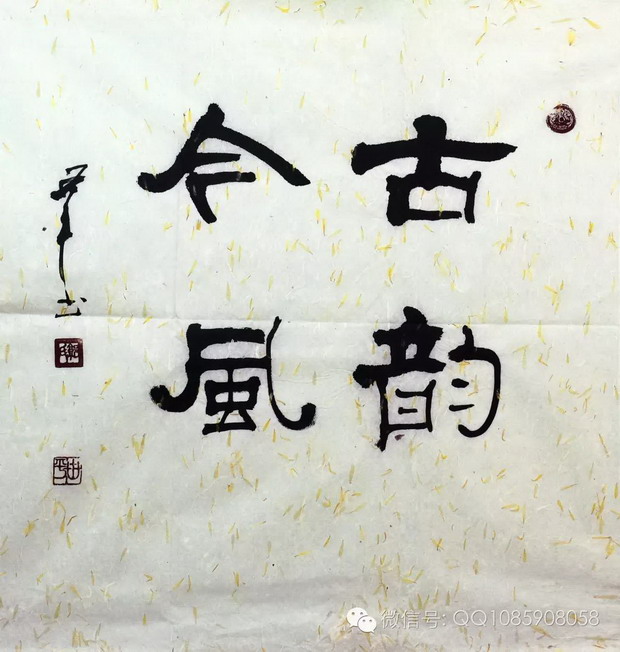 古韵
今風
微信号: QQ1085908058